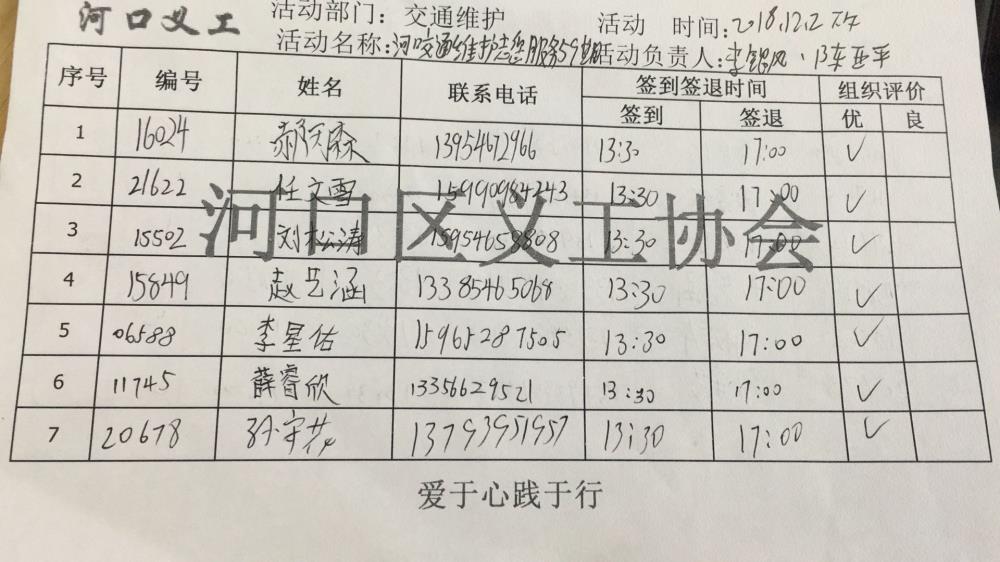 河口义工
活动部门：交通维护 活动 时间：2018.12.2 下午
活动名称：河口交通维护志愿服务59期 活动负责人：李锦凤、陈亚平
序号 编号 姓名 联系电话 签到签退时间 组织评价
签到 签退 优 良
1 16024 13954672966 13:30 17:00 ✓
2 21622 任文雪 15990984243 13:30 17:00 ✓
3 15502 刘松涛 15954658808 13:30 17:00 ✓
河口区义工协会
4 15849 赵艺涵 13385465068 13:30 17:00 ✓
5 06588 李星佑 15965287505 13:30 17:00 ✓
6 11745 薛睿欣 13356629521 13:30 17:00 ✓
7 20678 13793951957 13:30 17:00 ✓
爱于心践于行